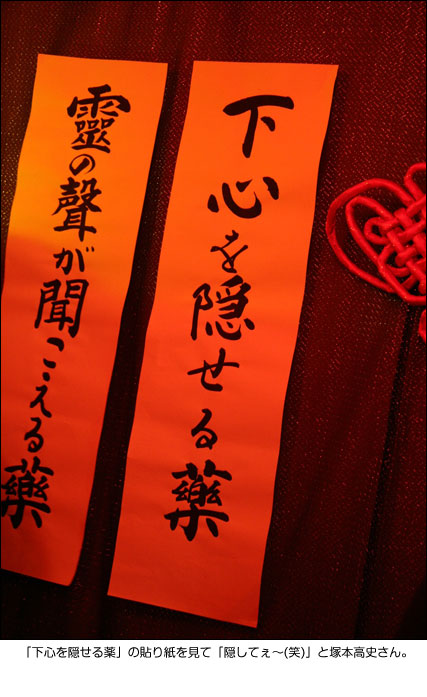 下心を隠せる藥
靈の聲が聞こえる藥
「下心を隠せる薬」の貼り紙を見て「隠してぇ～(笑)」と塚本高史さん。